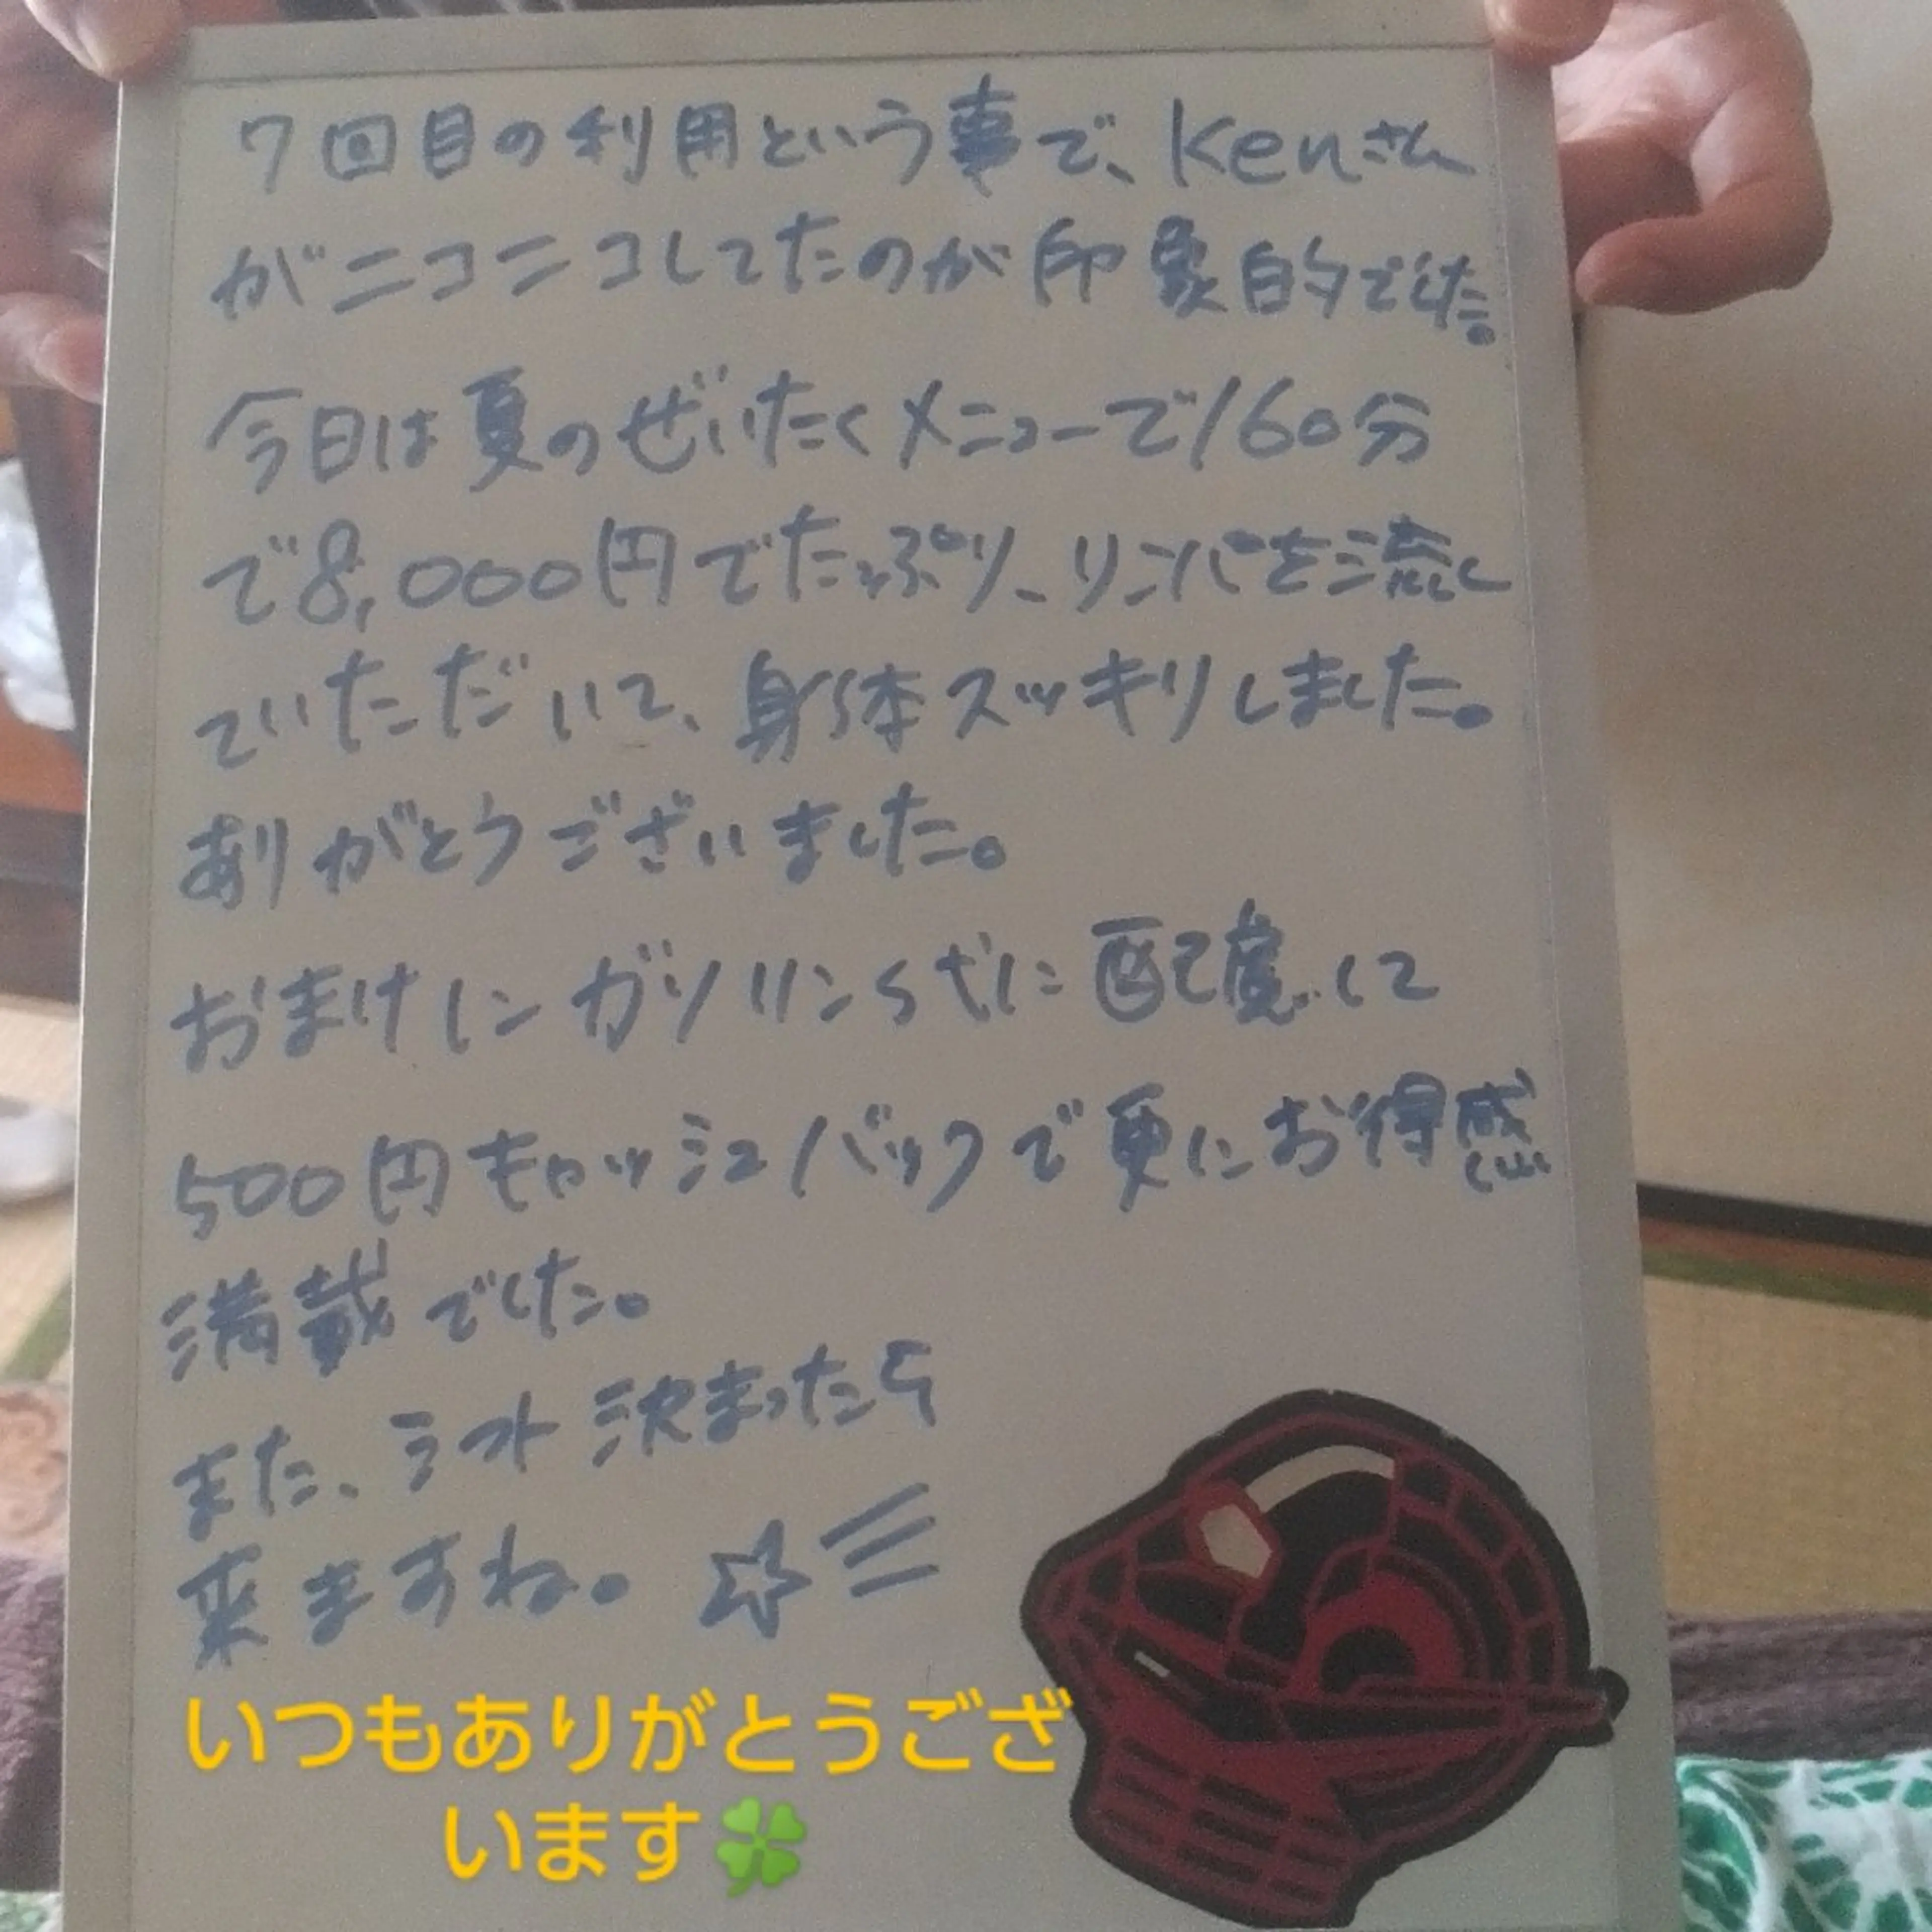 7回目の利用という事で、Kenさん
がニコニコしてたのが印象的でした。
今日は夏のぜいたくメニューで160分
で8,000円でたっぷり、リンパを流し
ていただいて、身体スッキリしました。
ありがとうございました。
おまけにガソリン代に配慮して
500円キャッシュバックで更にお得感
満載でした。
また、シフト決まったら
来ますね。☆彡
いつもありがとうござ
います🍀